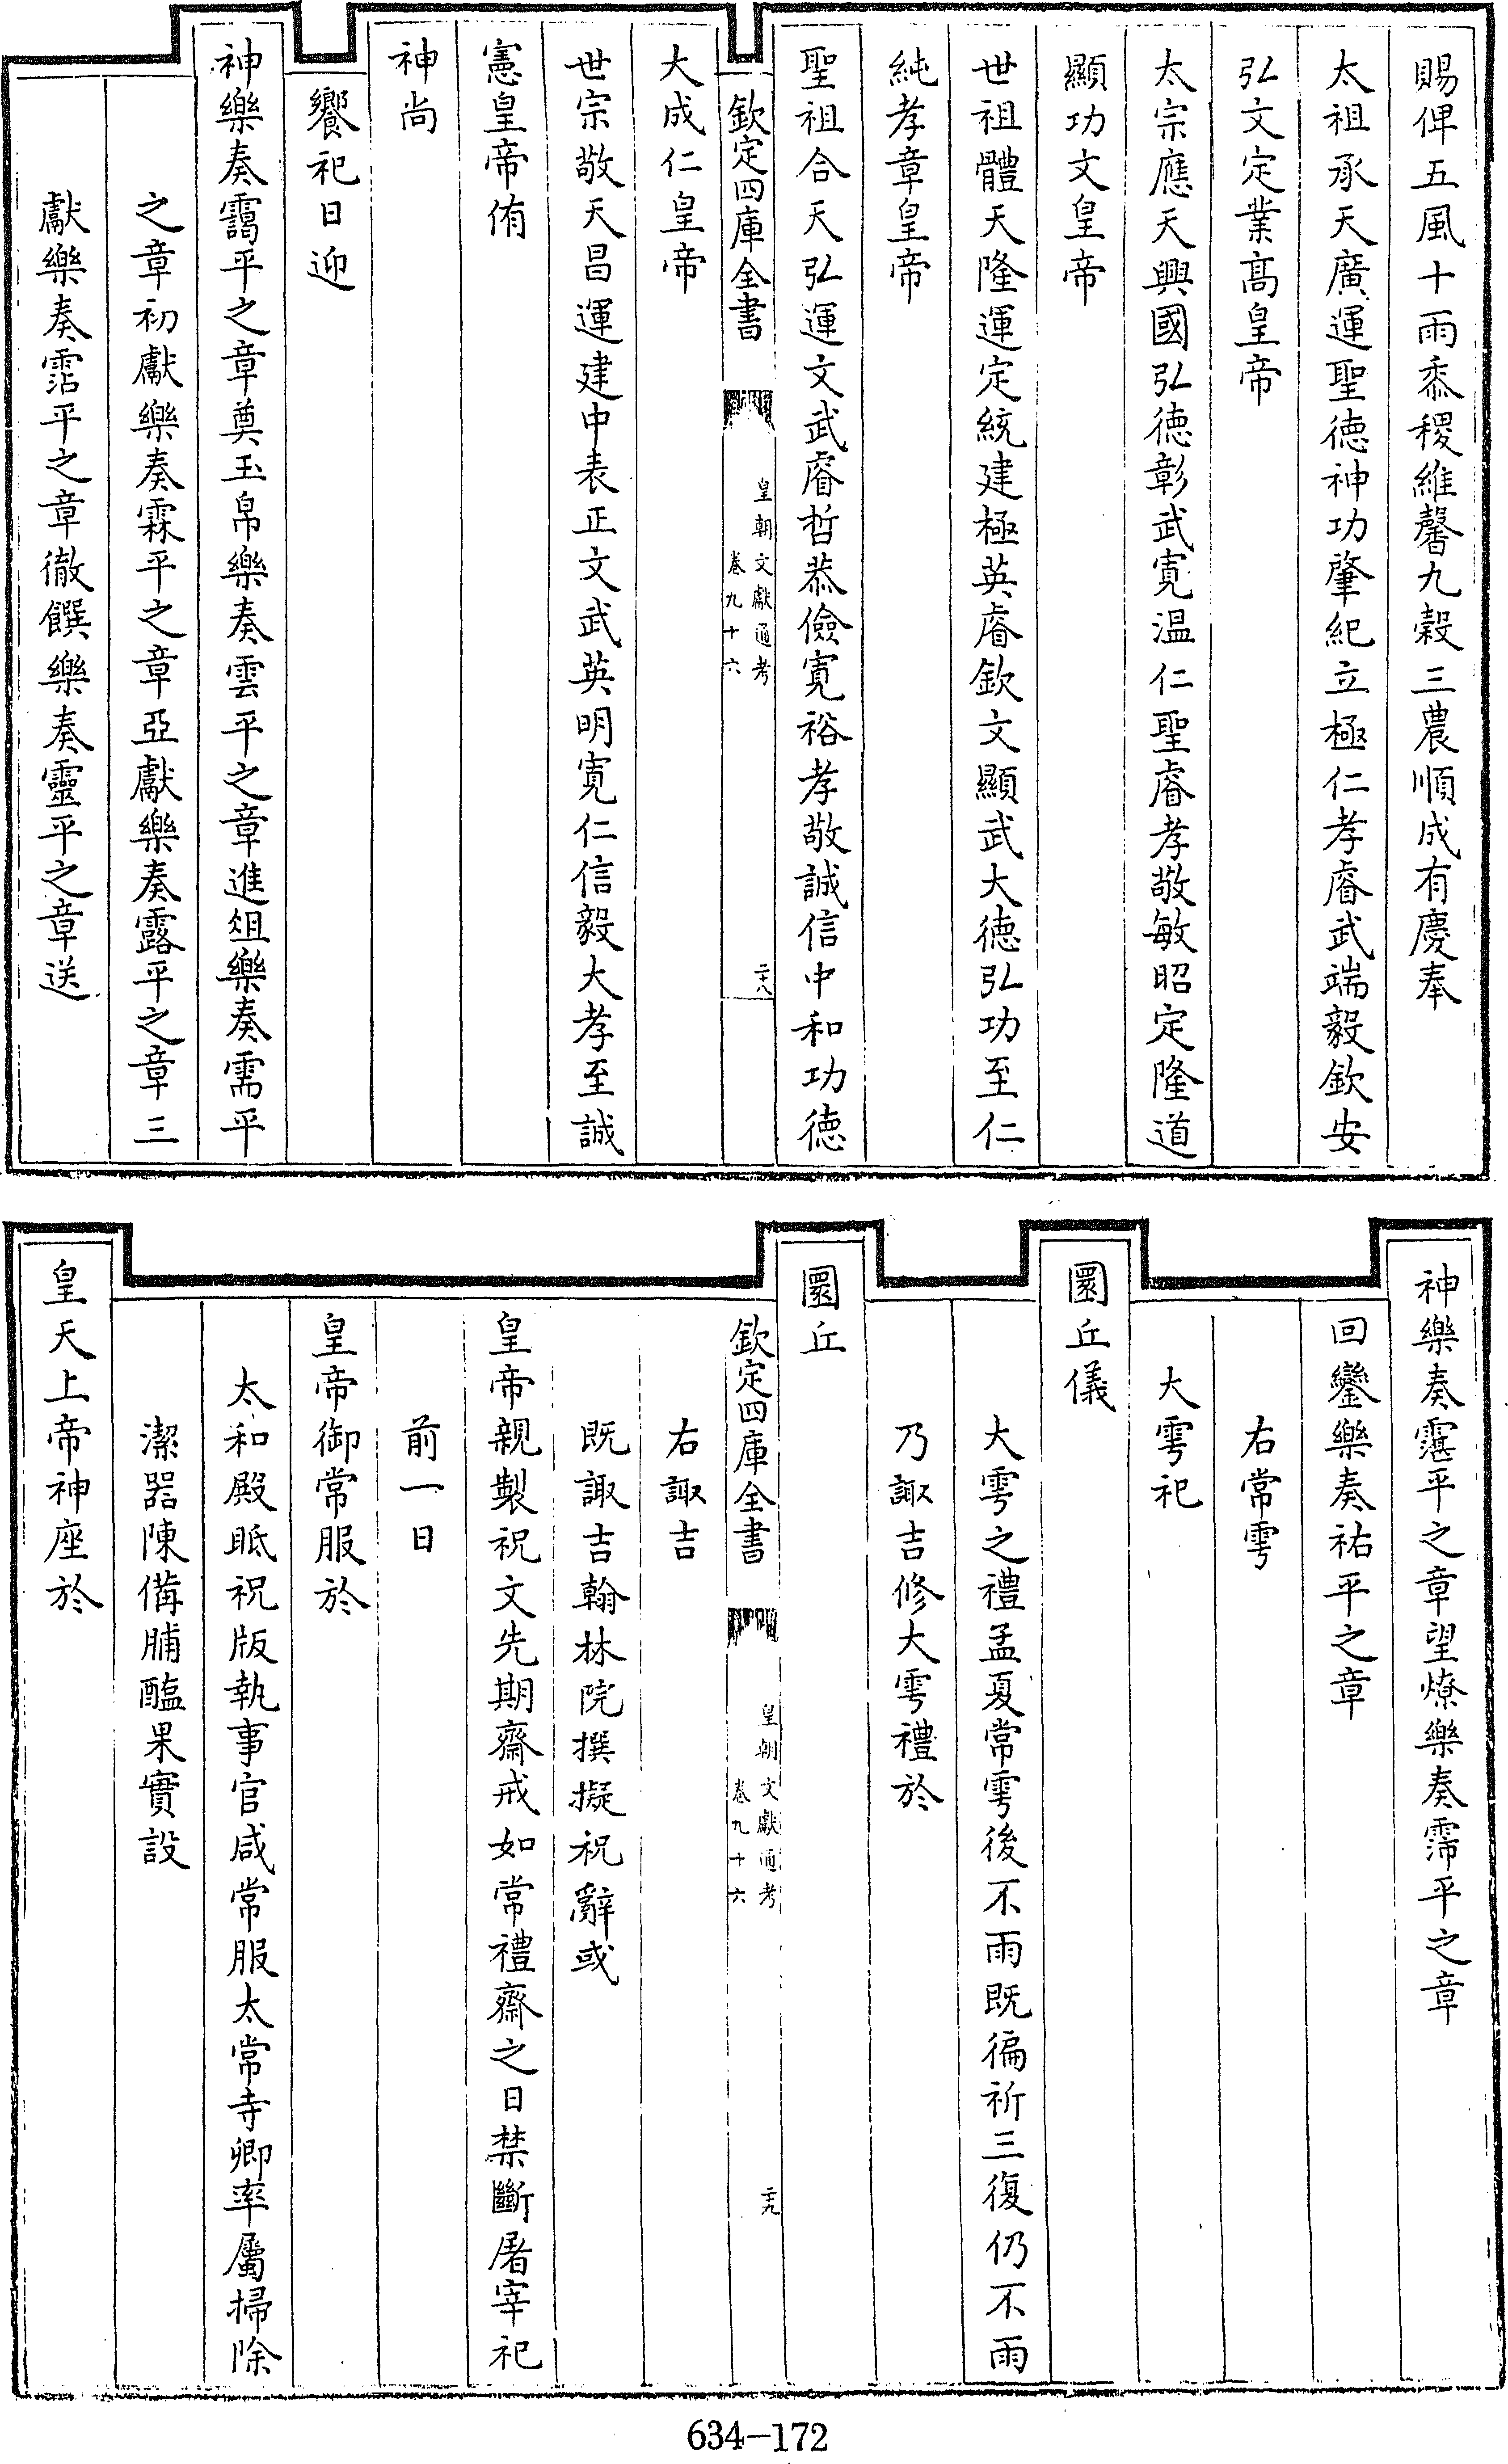 賜俾五風十雨黍稷維馨九穀三農順成有慶奉
太祖承天廣運聖德神功肇紀立極仁孝睿武端毅欽安
弘文定業髙皇帝
太宗應天興國弘德彰武寛温仁聖睿孝敬敏昭定隆道
顯功文皇帝
世祖體天隆運定統建極英睿欽文顯武大德弘功至仁
純孝章皇帝
聖祖合天弘運文武睿哲恭儉寛裕孝敬誠信中和功德
欽定四庫全書
皇朝文獻通考
卷九十六
二十八
大成仁皇帝
世宗敬天昌運建中表正文武英明寛仁信毅大孝至誠
憲皇帝侑
神尚
饗祀日迎
神樂奏靄平之章奠玉帛樂奏雲平之章進俎樂奏需平
之章初獻樂奏霖平之章亞獻樂奏露平之章三
獻樂奏霑平之章徹饌樂奏靈平之章送
神樂奏霮平之章望燎樂奏霈平之章
回鑾樂奏祐平之章
右常雩
大雩祀
圜丘儀
大雩之禮孟夏常雩後不雨既徧祈三復仍不雨
乃諏吉修大雩禮於
圜丘
欽定四庫全書
皇朝文獻通考
卷九十六
二十九
右諏吉
既諏吉翰林院撰擬祝辭或
皇帝親製祝文先期齋戒如常禮齋之日禁斷屠宰祀
前一日
皇帝御常服於
太和殿眡祝版執事官咸常服太常寺卿率屬掃除
潔器陳備脯醢果實設
皇天上帝神座於
634-172